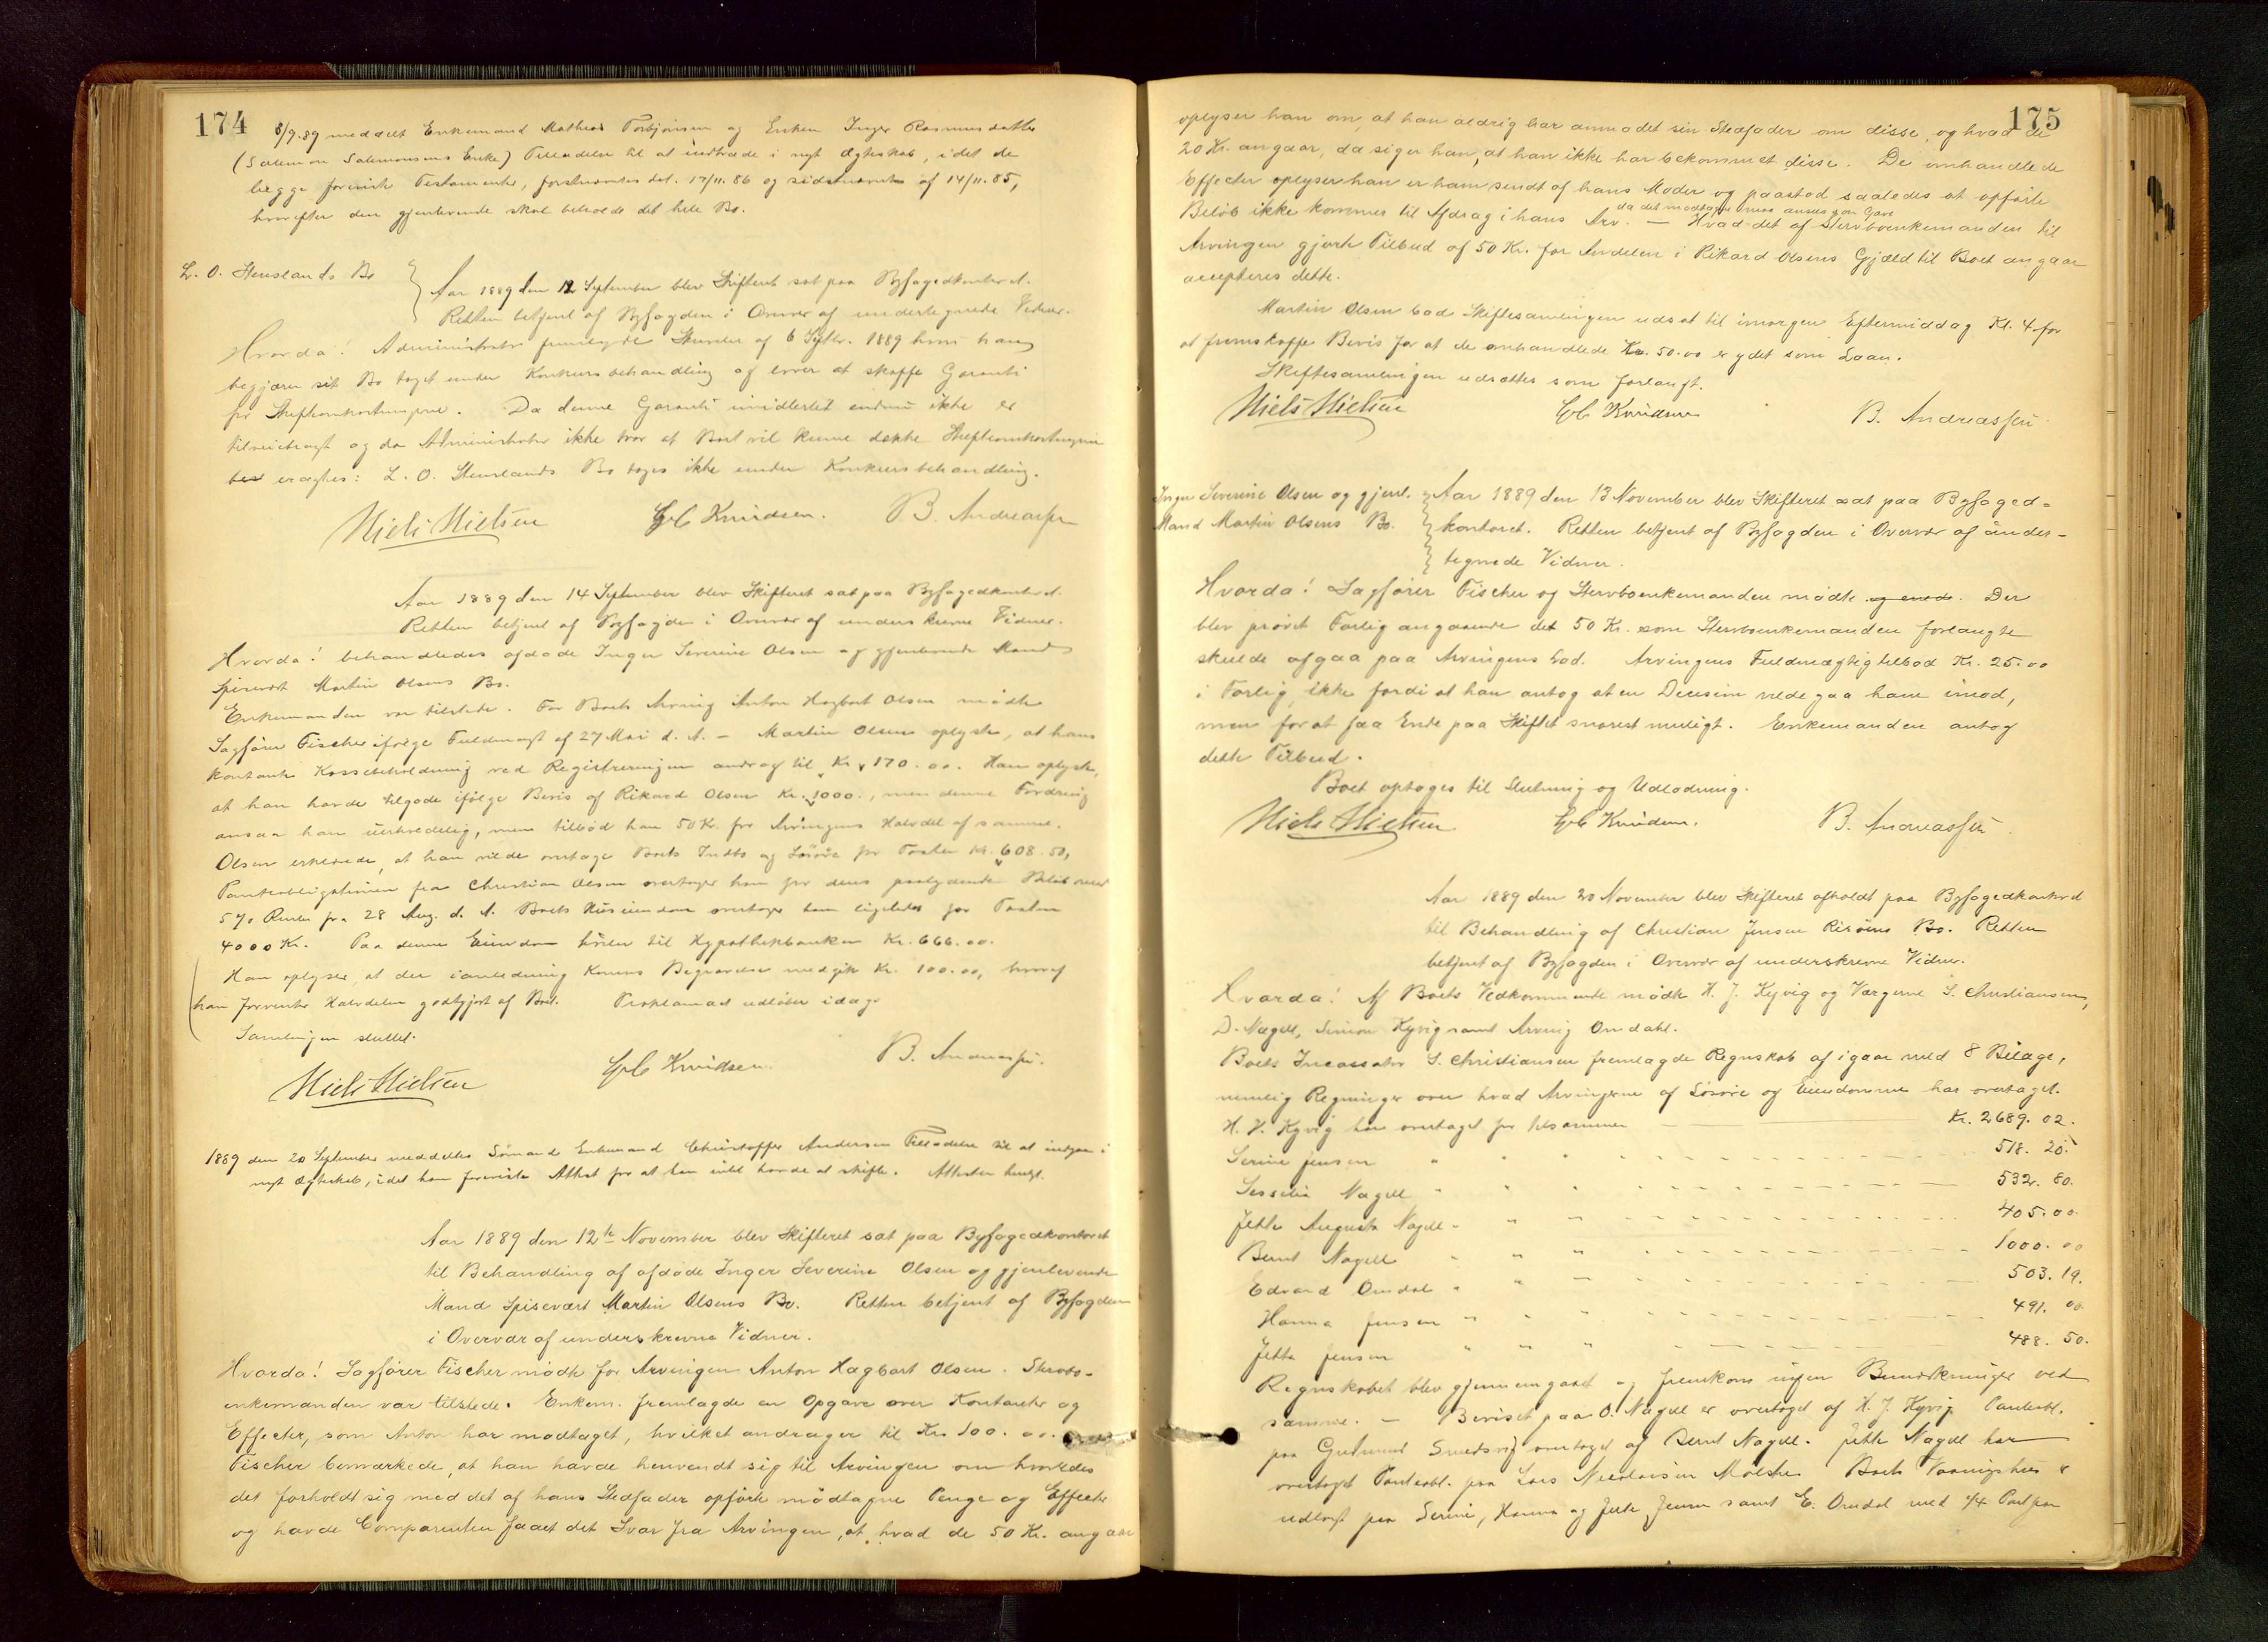 174
5/9.89 meddelt Enkemand Mathias Torbjörnsen og Enken Inger Rasmusdatter
(Salomon Salomonsens Enke) Tilladelse til at indtræde i nyt Ægteskab, idet de
begge foreviste Testamente, førstnævntes dat. 17/11.86 og sidstnævntes af 14/11.85,
hvorefter den gjenlevende skal beholde det hele Bo.
L. O. Stenslands Bo
Aar 1889 den 12 September blev Skifteret sat paa Byfogedkontoret.
Retten betjent af Byfogden i Overvær af undertegnede Vidner.
Hvorda! Administrator fremlagde Skrivelse af 6 Septbr. 1889 hvori han
begjærer sit Bo taget under Konkursbehandling og lover at skaffe Garanti
for Skifteomkostningerne. Da denne Garanti imidlertid endnu ikke er
tilveiebragt og da Administrator ikke tror at Boet vil kunne dække Skifteomkostningerne
eragtes: L. O. Stenslands Bo tages ikke under Konkursbehandling.
Niels Nielsen Knudsen. B. Andreassen
Aar 1889 den 14 September blev Skifteret sat paa Byfogedkontoret.
Retten betjent af Byfogden i Overvær af underskrevne Vidner.
Hvorda! behandledes afdøde Inger Severine Olsen og gjenlevende Mand
Spisevært Martin Olsens Bo.
Enkemanden var tilstede. For Boets Arving Anton Hagbart Olsen mødte
Sagfører Fischer ifølge Fuldmagt af 27 Mai d. A. – Martin Olsen oplyste, at hans
kontante Kassebeholdning ved Registreringen androg til Kr. 170.00. Han oplyste,
at han havde tilgode ifølge Bevis af Rikard Olsen Kr. 1000., men denne Fordring
ansaa han uerholdelig, men tilbød han 50 Kr. for Arvingens Halvdel af samme.
Olsen erklærede, at han vilde overtage Boets Indbo og Løsøre for Taxten Kr. 608.50,
Panteobligationen fra Christian Olsen overtager han for dens paalydende Beløb med
5% Renter fra 28 Aug. d. A. Boets Huseiendom overtager han ligeledes for Taxten
4000 Kr. Paa denne Eiendom hviler til Hypothekbanken Kr. 666.00.
Han oplyser, at der i anledning Konens Begravelse medgik Kr. 100.00, hvoraf
han forventer Halvdelen godtgjort af Boet. Proklamaet udløber idag.
Samlingen sluttet.
Niels Nielsen Knudsen. B. Andreassen.
1889 den 20 September meddeltes Sömand Enkemand Christoffer Andersen Tilladelse til at indgaa i
nyt Ægteskab, idet han foreviste Attest for at han intet havde at skifte. Attesten henlgt.
Aar 1889 den 12te November blev Skifteret sat paa Byfogedkontoret
til Behandling af afdøde Inger Severine Olsen og gjenlevende
Mand Spisevært Martin Olsens Bo. Retten betjent af Byfogden
i Overvær af underskrevne Vidner.
Hvorda! Sagfører Fischer mødte for Arvingen Anton Hagbart Olsen. Stervbo-
enkemanden var tilstede. Enkem. fremlagde en Opgave over Kontanter og
Effecter, som Anton har modtaget, hvilket andrager til Kr. 100.00.
Fischer bemærkede, at han havde henvendt sig til Arvingen om hvorledes
det forholdt sig med det af hans Stedfader opførte modtagne Penge og Effecter
og havde Comparenten faaet det Svar fra Arvingen, at hvad de 50 Kr. angaar
175
oplyser han om, at han aldrig har anmodet sin Stedfader om disse, og hvad de
20 Kr. angaar, da siger han, at han ikke har bekommet disse. De omhandlede
Effecter oplyser han er ham sendt af hans Moder og paastod saaledes at opførte
Beløb ikke kommer til Afdrag i hans Arv. da det modtagne maa anses som Gave – Hvad det af Stervboenkemanden til
Arvingen gjorte Tilbud af 50 Kr. for Andelen i Rikard Olsens Gjæld til Boet angaar
accepteres dette.
Martin Olsen bad Skiftesamlingen udsat til imorgen Eftermiddag Kl. 4 for
at fremskaffe Bevis for at de omhandlede Kr. 50.00 er ydet som Laan.
Skiftesamlingen udsattes som forlangt.
Niels Nielsen Knudsen B. Andreassen
Inger Severine Olsen og gjenl.
Mand Martin Olsens Bo.
Aar 1889 den 13 November blev Skifteret sat paa Byfoged-
kontoret. Retten betjent af Byfogden i Overvær af under-
tegnede Vidner.
Hvorda! Sagfører Fischer og Stervboenkemanden mødte. Der
blev prøvet Forlig angaaende det 50 Kr. som Stervboenkemanden forlangte
skulde afgaa paa Arvingens Lod. Arvingens Fuldmægtig tilbød Kr. 25.00
i Forlig, ikke fordi at han antog at en Decision vilde gaa ham imod,
men for at faa Ende paa Skiftet snarest muligt. Enkemanden antog
dette Tilbud.
Boet optages til Slutning og Udlodning.
Niels Nielsen Knudsen. B. Andreassen.
Aar 1889 den 20 November blev Skifteret afholdt paa Byfogedkontoret
til Behandling af Christian Jensen Risöens Bo. Retten
betjent af Byfogden i Overvær af underskrevne Vidner.
Hvorda! Af Boets Vedkommende mødte H. J. Kyvig og Værgerne S. Christiansen,
D. Nagell, Simon Kyvig samt Arving Omdahl.
Boets Incassator S. Christiansen fremlagde Regnskab af igaar med 8 Bilage,
nemlig Regninger over hvad Arvingerne af Løsøre og Eiendomme har overtaget.
H. J. Kyvig har overtaget for tilsammen Kr. 2689.02.
Serine Jensen " " " 518.20.
Sesselia Nagell " " " 532.80.
Jette Augusta Nagell " " 405.00
Bernt Nagell " " " 1000.00
Edvard Omdal " " 503.19.
Hanna Jensen " " " 491.00
Jette Jensen " " " 488.50.
Regnskabet blev gjennemgaaet og fremkom ingen Bemærkninger ved
samme. – Beviset paa O. Nagell er overtaget af H. J. Kyvig Panteobl.
paa Gudmund Smedsvig overtaget af Bernt Nagell. Jette Nagell har
overtaget Panteobl. paa Lars Nicolaisen Boets Vaaningshus
udlagt paa Serine, Hanna og Jette Jensen samt E. Omdal med 1/4 Part paa